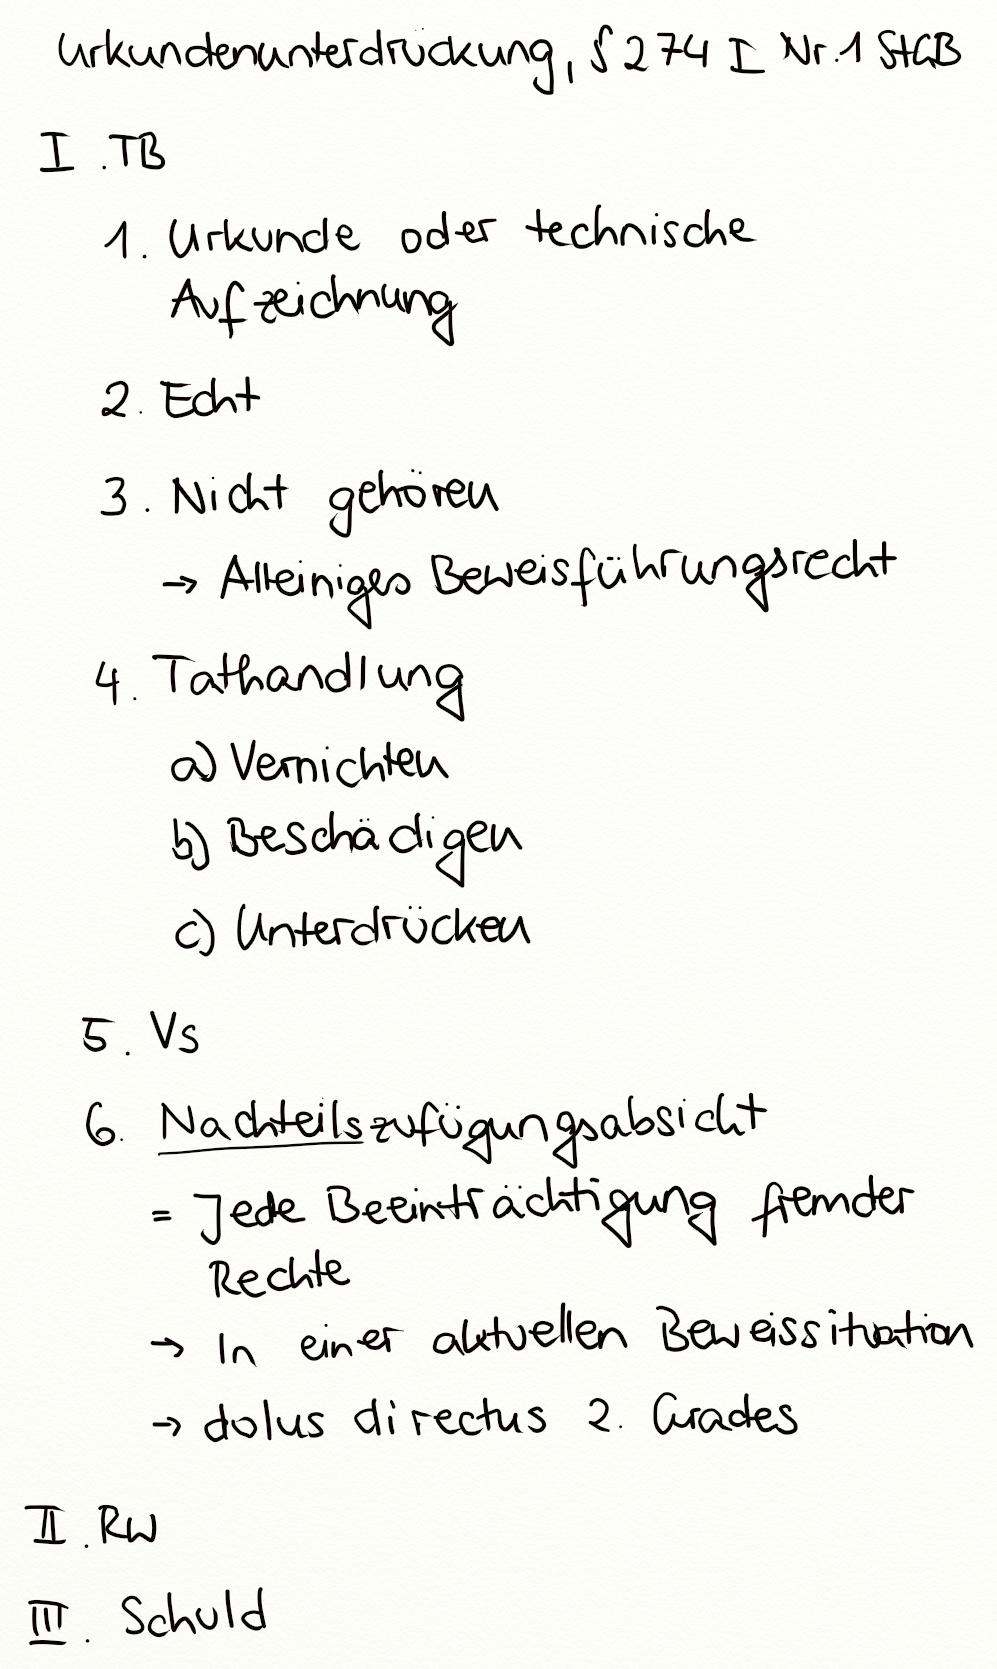 Urkundenunterdrückung, § 274 I Nr. 1 StGB
I. TB
1. Urkunde oder technische
Aufzeichnung
2. Echt
3. Nicht gehören
→ Alleiniges Beweisführungsrecht
4. Tathandlung
a) Vernichten
b) Beschädigen
c) Unterdrücken
5. Vs
6. Nachteilszufügungsabsicht
= Jede Beeinträchtigung fremder
Rechte
→ In einer aktuellen Beweissituation
→ dolus directus 2. Grades
II. RW
III. Schuld